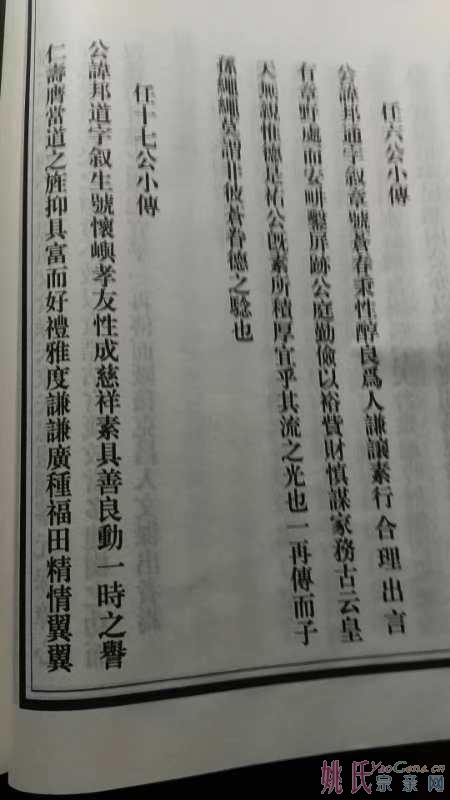 任六公小傳
公諱邦通字叙章號蒼春秉性醇良爲人謙讓素行合理出言
有章野處而安畊鑿屏跡公庭勤儉以裕貲財慎謀家務古云皇
天無親惟德是祐公旣素所積厚宜乎其流之光也一再傳而子
孫繩繩莫謂非彼蒼眷德之騐也
任十七公小傳
公諱邦道字叙生號懷嶼孝友性成慈祥素具善良動一時之譽
仁壽膺當道之旌抑且富而好禮雅度謙謙廣種福田精情翼翼
姚氏宗亲网
YaoGens.cn